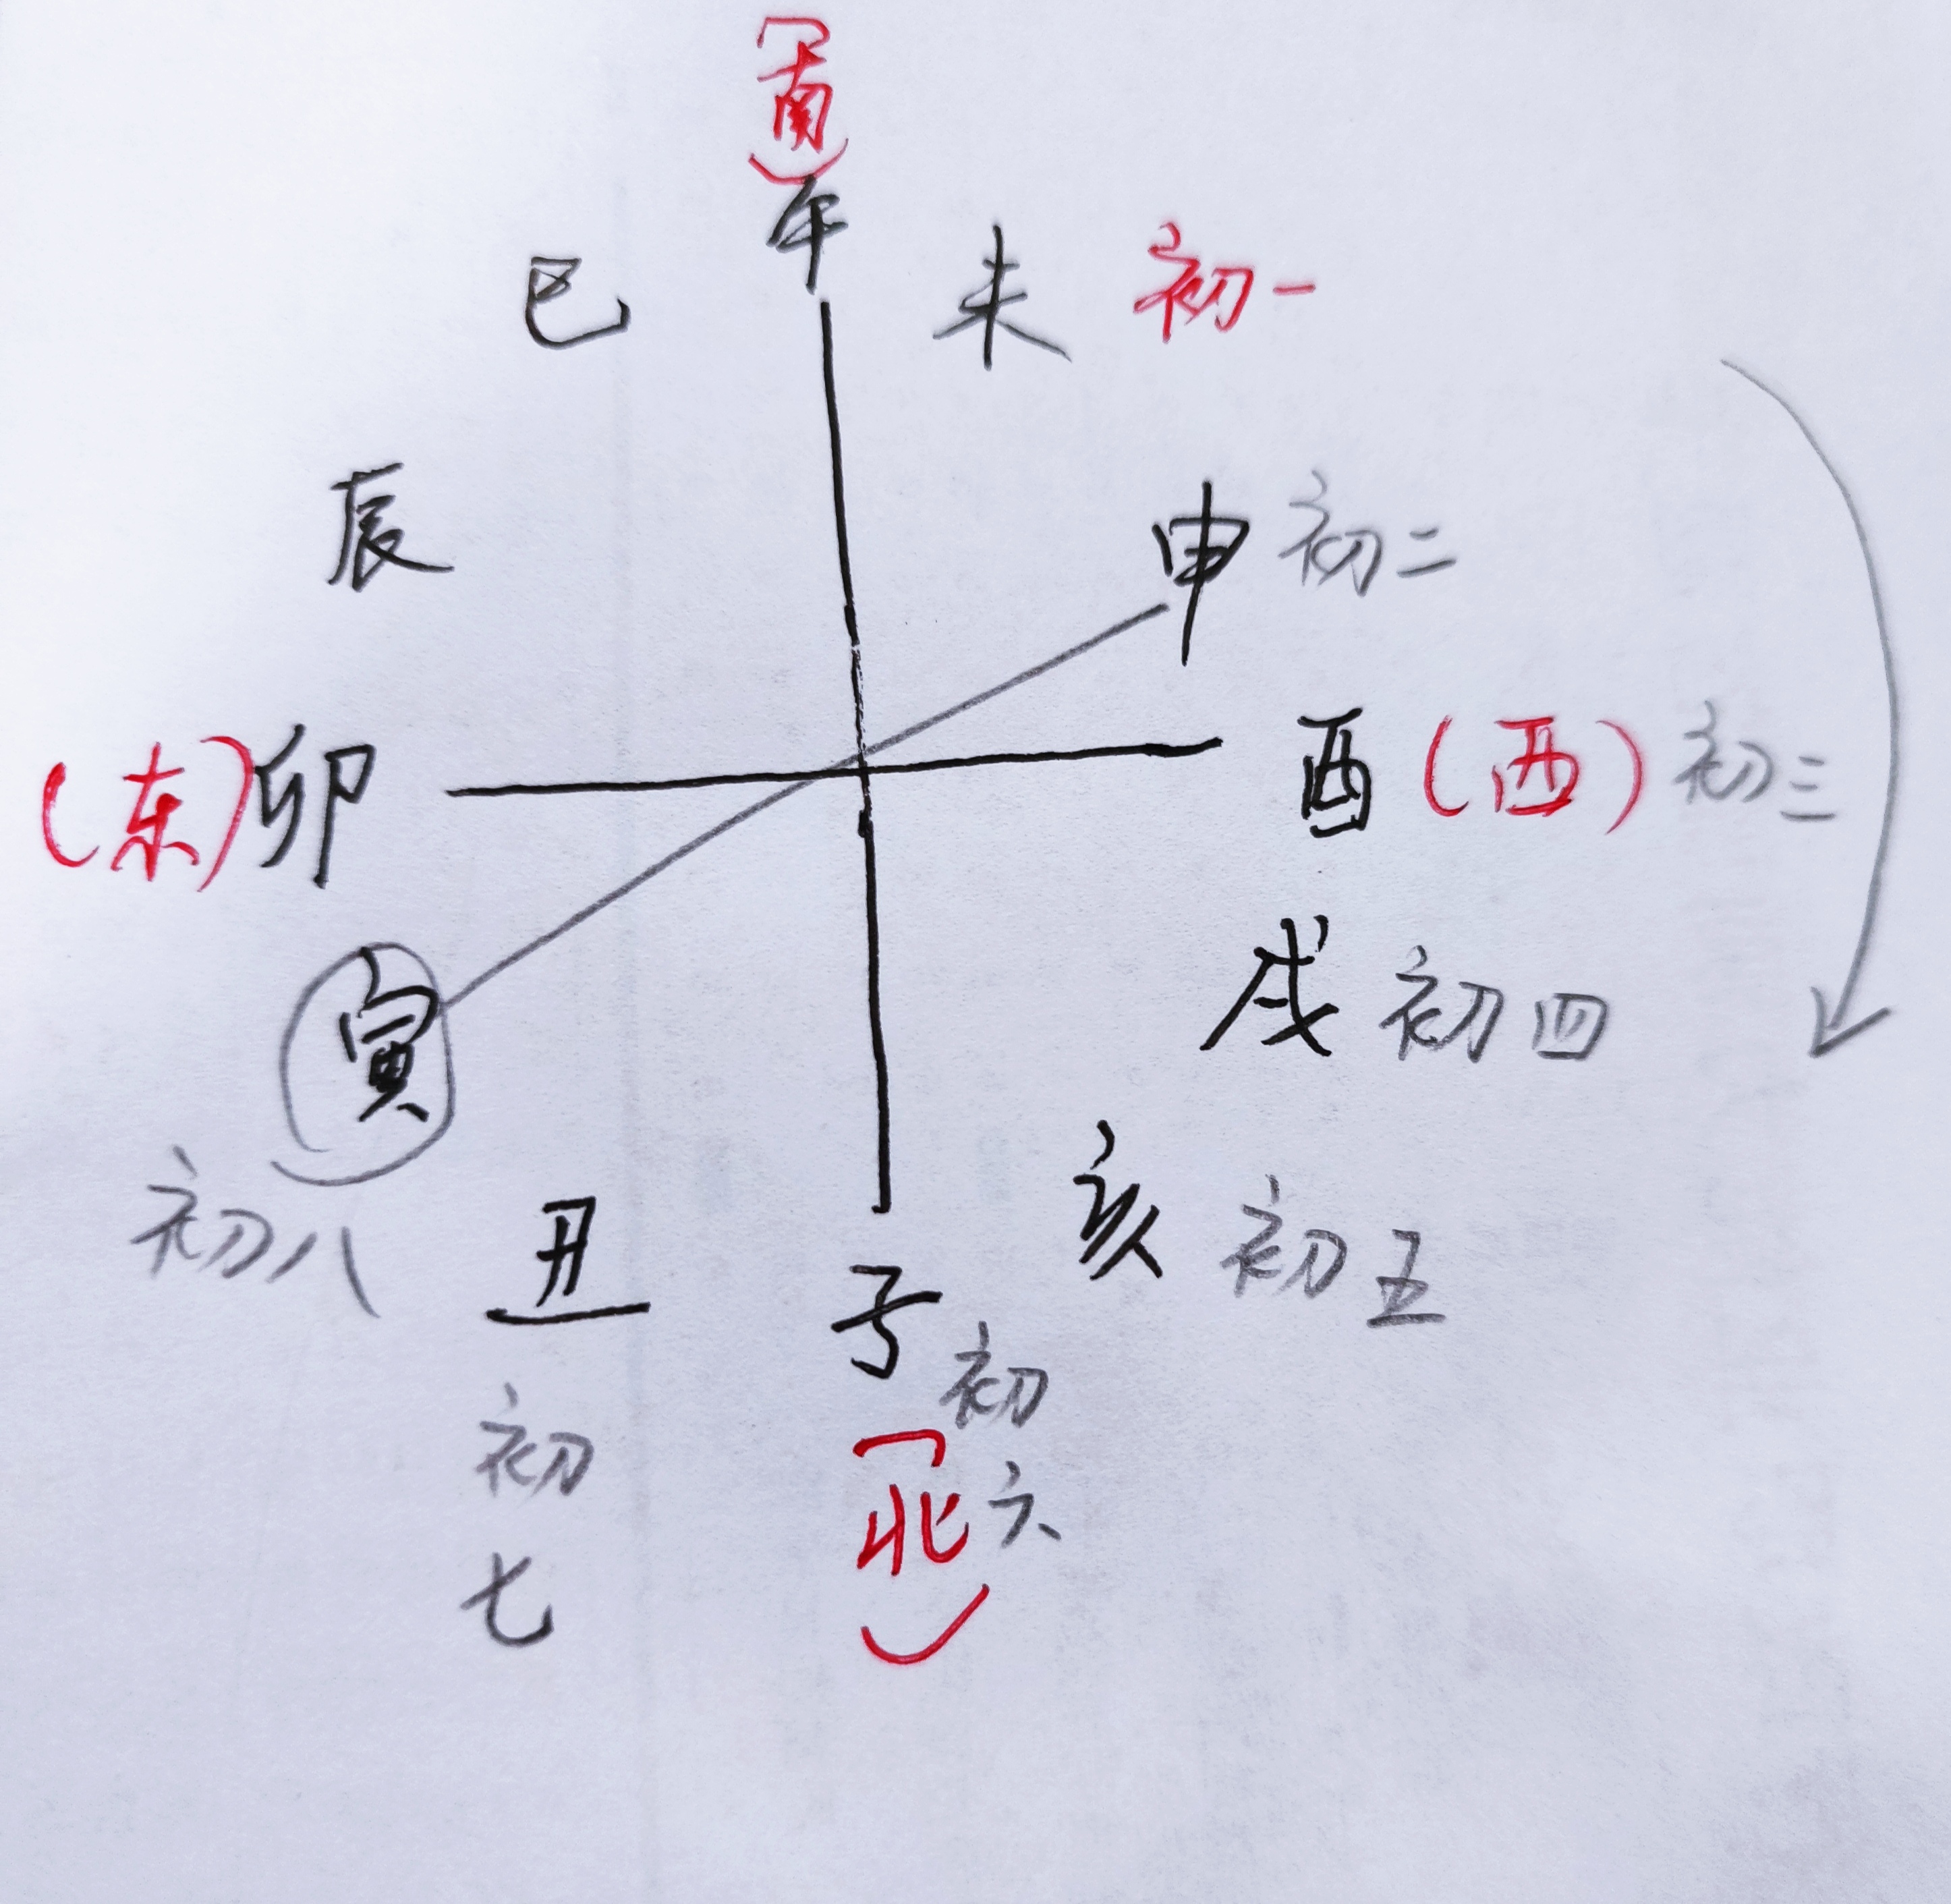 (南)
午
巳
未 初一
辰
申 初二
(东)卯
酉(西)初三
寅
初八
戌 初四
亥 初五
丑
初七
子
初六
(北)